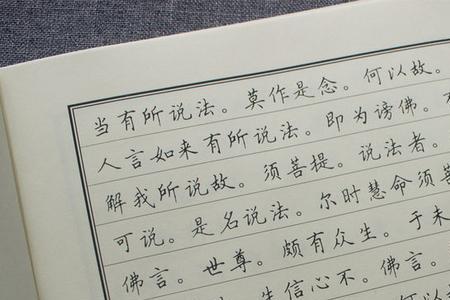 当有所说法。莫作是念。何以故。
人言如来有所说法。即为谤佛。不
解我所说故。须菩提。说法者。
可说。是名说法。尔时慧命须菩
佛言。世尊。颇有众生。于未
生信心不。佛言。